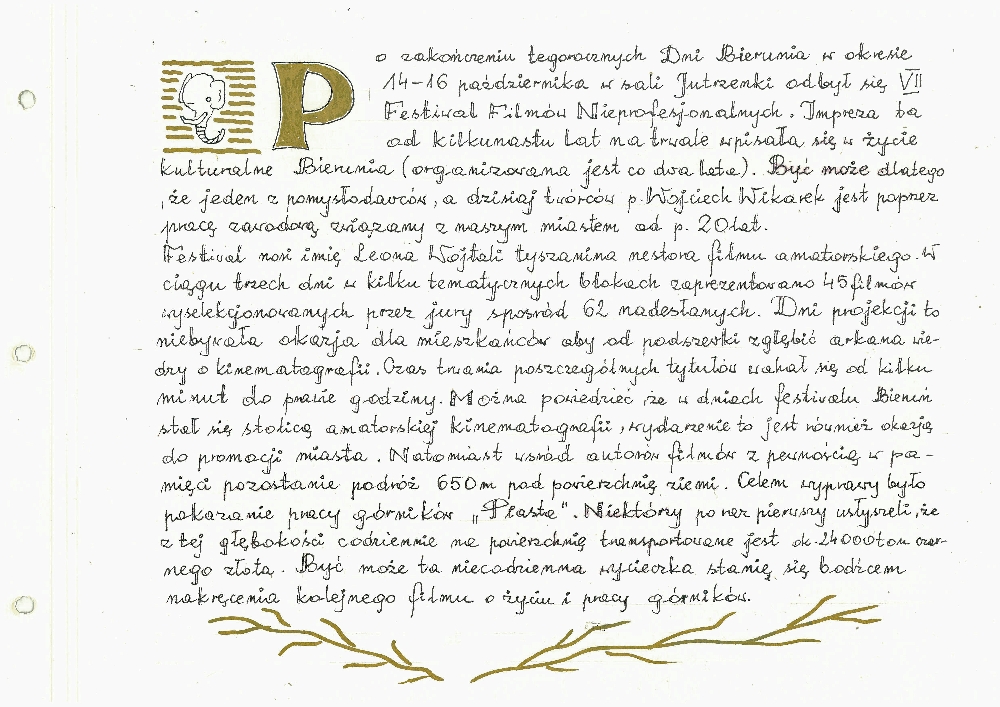 Po zakończeniu tegorocznych Dni Bierunia w okresie
14-16 października w sali Jutrzenki odbył się VII
Festiwal Filmów Nieprofesjonalnych. Impreza ta
od kilkunastu lat na trwale wpisała się w życie
kulturalne Bierunia (organizowana jest co dwa lata). Być może dlatego
, że jeden z pomysłodawców, a dzisiaj twórców p. Wojciech Wikarek jest poprzez
pracę zawodową związany z naszym miastem od p. 20 lat.
Festiwal nosi imię Leona Wojtali tyszanina nestora filmu amatorskiego. W
ciągu trzech dni w kilku tematycznych blokach zaprezentowano 45 filmów
wyselekcjonowanych przez jury spośród 62 nadesłanych. Dni projekcji to
niebywała okazja dla mieszkańców aby od podszewki zgłębić arkana wie-
dzy o kinematografii. Czas trwania poszczególnych tytułów wahał się od kilku
minut do prawie godziny. Można powiedzieć, że w dniach festiwalu Bieruń
stał się stolicą amatorskiej kinematografii, wydarzenie to jest również okazją
do promocji miasta. Natomiast wśród autorów filmów z pewnością w pa-
mięci pozostanie podróż 650m pod powierzchnię ziemi. Celem wyprawy było
pokazanie pracy górników „Piasta". Niektórzy po raz pierwszy usłyszeli, że
z tej głębokości codziennie na powierzchnię transportowane jest ok. 24000 ton czar-
nego złota. Być może ta niecodzienna wycieczka stanie się bodźcem
nakręcenia kolejnego filmu o życiu i pracy górników.